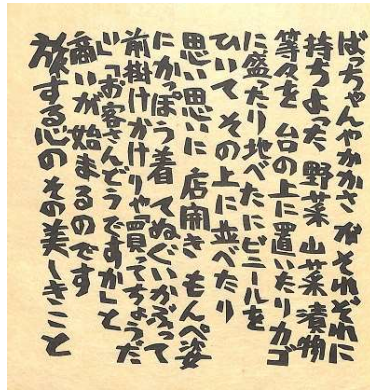 ばっちゃんやかかさ がそれぞれに
持ちよった 野菜 山菜 漬物
等々を 台の上に置いたりカゴ
に盛ったり地べたにビニールを
ひいて その上に並べたり
思い思いに 店開き もんぺ姿
にかっぽう着 てぬぐいかぶって
前掛けかけりゃ「買ってちょうだ
い」「お客さんどうですか」と
商いが 始まるのです
旅する心の その美しきこと